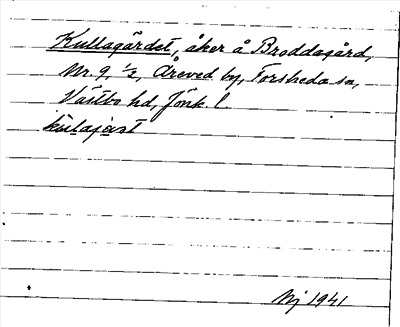 Kullagärdet, åker å Broddagård,
Nr. 9, ½, Åreved by, Forsheda sn,
Västbo hd, Jönk. l.
kulajæst
Nj 1941